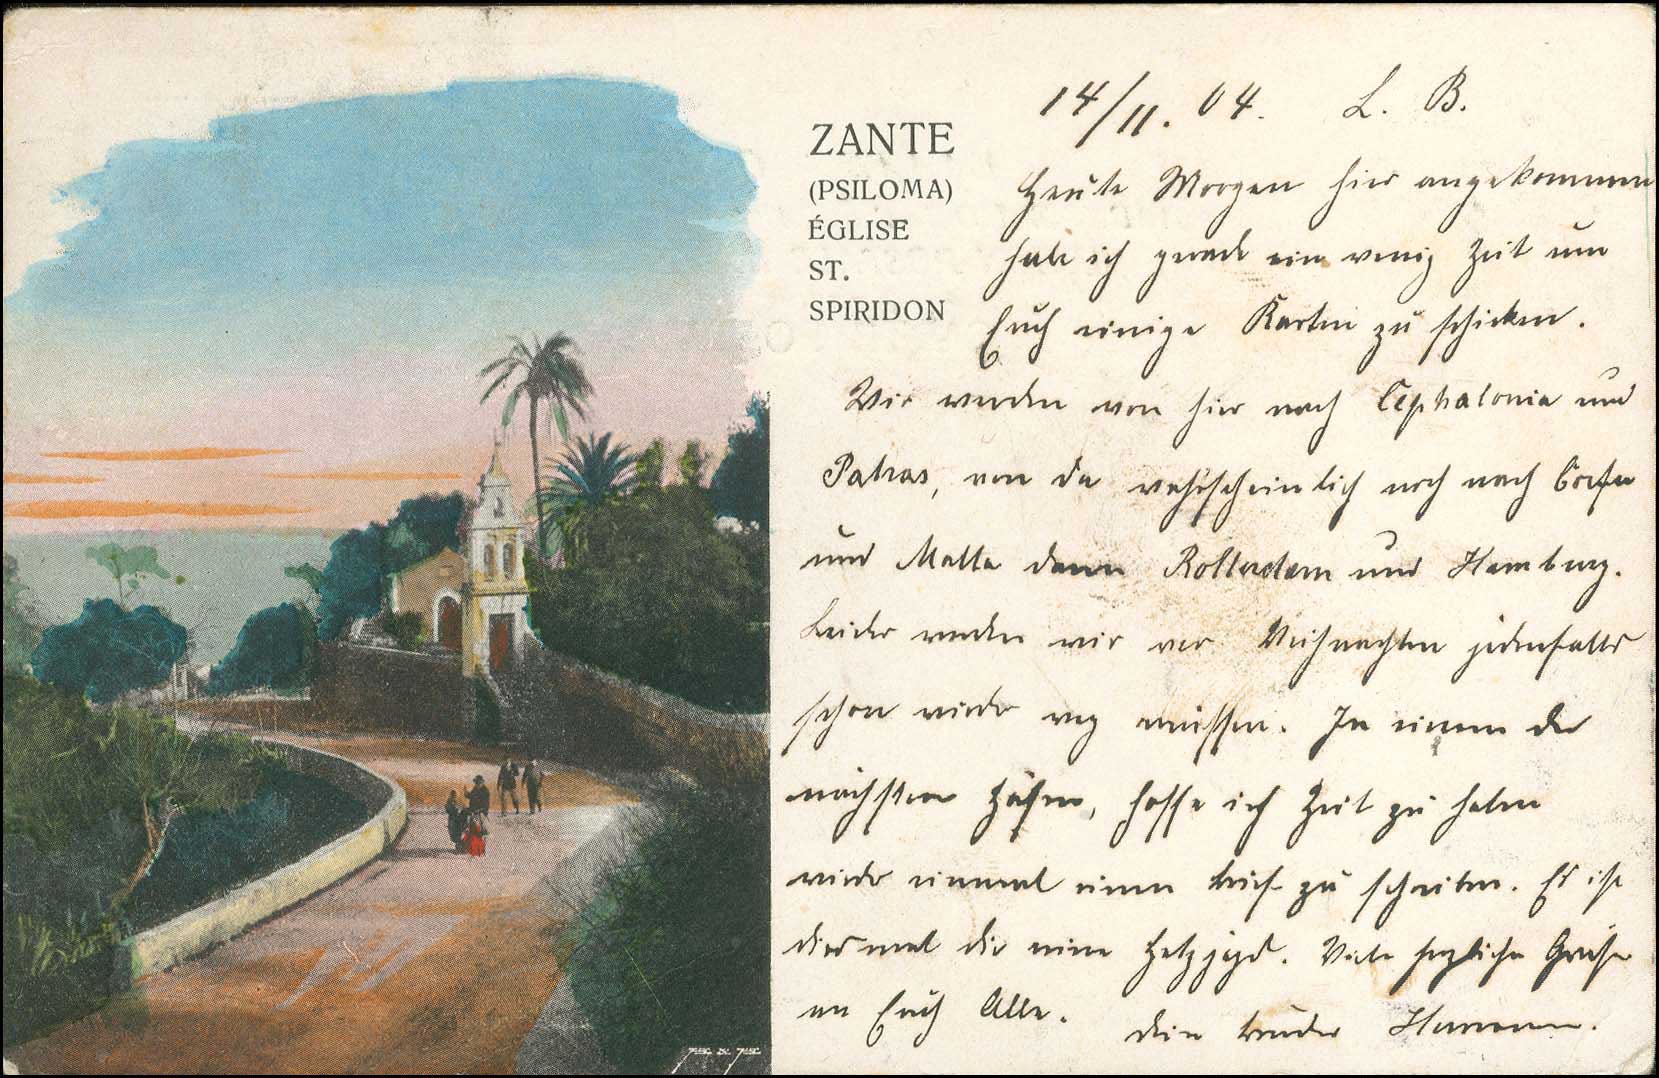 ZANTE
(PSILOMA)
ÉGLISE
ST.
SPIRIDON
14/11. 04. L. B.
Heute Morgen hier angekommen
habe ich gerade ein wenig Zeit um
Euch einige Karten zu schicken.
Wir werden von hier nach Cephalonia und
Patras, von da wahrscheinlich noch nach Corfu
und Malta dann Rotterdam und Hamburg.
Leider werden wir vor Weihnachten jedenfalls
schon wieder weg müssen. In einem der
nächsten Häfen, hoffe ich Zeit zu haben
wieder einmal einen Brief zu schreiben. Es ist
diesmal die reine Hetzjagd. Viele herzliche Grüße
an Euch Alle. Dein Bruder Hermann.